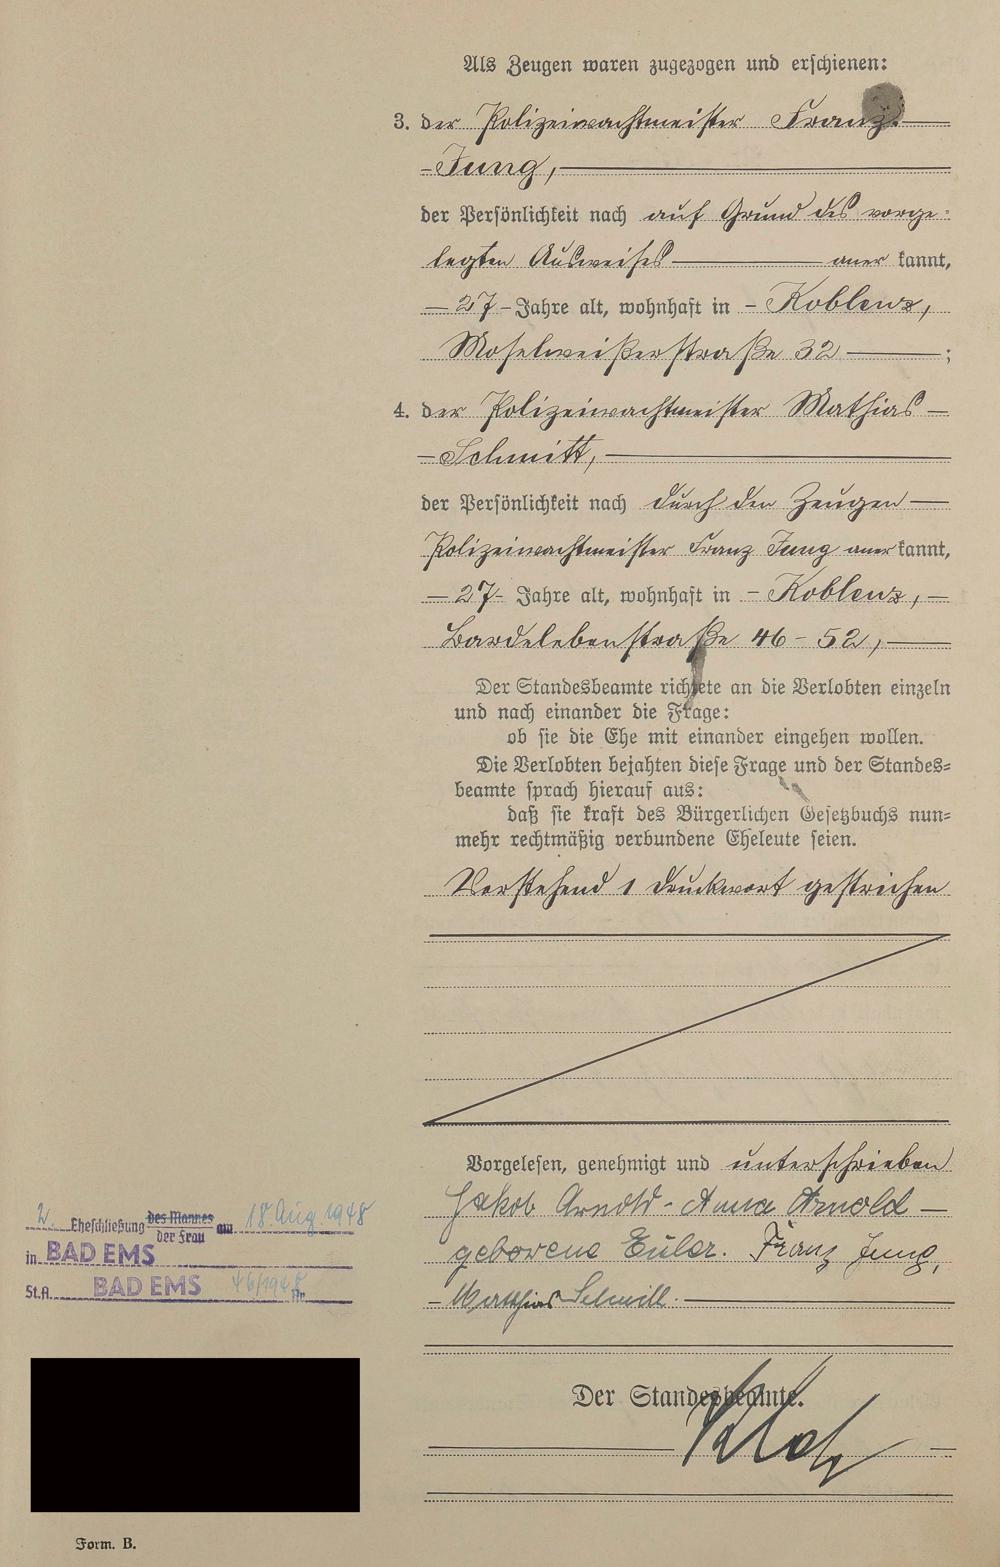 Als Zeugen waren zugezogen und erschienen:
3. der Polizeiwachtmeister Franz
Jung,
der Persönlichkeit nach auf Grund des vorge-
legten Ausweises aner kannt,
27 Jahre alt, wohnhaft in Koblenz,
Moselweißerstraße 32 ;
4. der Polizeiwachtmeister Mathias
Schmitt,
der Persönlichkeit nach durch den Zeugen
Polizeiwachtmeister Franz Jung aner kannt,
27 Jahre alt, wohnhaft in Koblenz,
Bardelebenstraße 46-52,
Der Standesbeamte richtete an die Verlobten einzeln
und nach einander die Frage:
ob sie die Ehe mit einander eingehen wollen.
Die Verlobten bejahten diese Frage und der Standes-
beamte sprach hierauf aus:
daß sie kraft des Bürgerlichen Gesetzbuchs nun-
mehr rechtmäßig verbundene Eheleute seien.
Vorstehend 1 Druckwort gestrichen
Vorgelesen, genehmigt und unterschrieben
Jakob Arnold - Anna Arnold
geborene Euler. Franz Jung,
Matthias Schmitt.
Der Standesbeamte.
2. Eheschließung des Mannes
der Frau am 18. Aug. 1948
in BAD EMS
St.A. BAD EMS 46/1948 Nr.
Form. B.